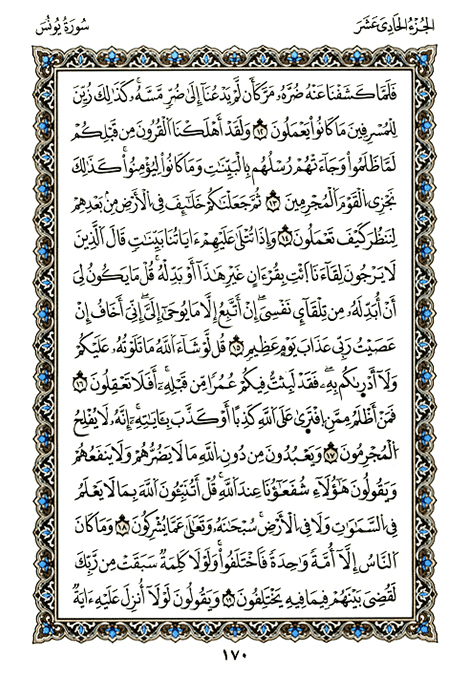 الجُزْءُ الحَادِى عَشَرَ
سُورَةُ يُونُسَ
فَلَمَّا كَشَفْنَا عَنْهُ ضُرَّهُۥ مَرَّ كَأَن لَّمْ يَدْعُنَآ إِلَىٰ ضُرٍّ مَّسَّهُۥ كَذَٰلِكَ زُيِّنَ
لِلْمُسْرِفِينَ مَا كَانُوا۟ يَعْمَلُونَ ١٢ وَلَقَدْ أَهْلَكْنَا الْقُرُونَ مِن قَبْلِكُمْ
لَمَّا ظَلَمُوا۟ وَجَآءَتْهُمْ رُسُلُهُم بِالْبَيِّنَٰتِ وَمَا كَانُوا۟ لِيُؤْمِنُوا۟ كَذَٰلِكَ
نَجْزِى الْقَوْمَ الْمُجْرِمِينَ ١٣ ثُمَّ جَعَلْنَٰكُمْ خَلَٰٓئِفَ فِى الْأَرْضِ مِنۢ بَعْدِهِمْ
لِنَنظُرَ كَيْفَ تَعْمَلُونَ ١٤ وَإِذَا تُتْلَىٰ عَلَيْهِمْ ءَايَاتُنَا بَيِّنَٰتٍ قَالَ الَّذِينَ
لَا يَرْجُونَ لِقَآءَنَا ائْتِ بِقُرْءَانٍ غَيْرِ هَٰذَآ أَوْ بَدِّلْهُ قُلْ مَا يَكُونُ لِىٓ
أَنْ أُبَدِّلَهُۥ مِن تِلْقَآئِ نَفْسِىٓ إِنْ أَتَّبِعُ إِلَّا مَا يُوحَىٰٓ إِلَىَّ إِنِّىٓ أَخَافُ إِنْ
عَصَيْتُ رَبِّى عَذَابَ يَوْمٍ عَظِيمٍ ١٥ قُل لَّوْ شَآءَ اللَّهُ مَا تَلَوْتُهُۥ عَلَيْكُمْ
وَلَآ أَدْرَىٰكُم بِهِۦ فَقَدْ لَبِثْتُ فِيكُمْ عُمُرًا مِّن قَبْلِهِۦٓ أَفَلَا تَعْقِلُونَ ١٦
فَمَنْ أَظْلَمُ مِمَّنِ افْتَرَىٰ عَلَى اللَّهِ كَذِبًا أَوْ كَذَّبَ بِـَٔايَٰتِهِۦٓ إِنَّهُۥ لَا يُفْلِحُ
الْمُجْرِمُونَ ١٧ وَيَعْبُدُونَ مِن دُونِ اللَّهِ مَا لَا يَضُرُّهُمْ وَلَا يَنفَعُهُمْ
وَيَقُولُونَ هَٰٓؤُلَآءِ شُفَعَٰٓؤُنَا عِندَ اللَّهِ قُلْ أَتُنَبِّـُٔونَ اللَّهَ بِمَا لَا يَعْلَمُ
فِى السَّمَٰوَٰتِ وَلَا فِى الْأَرْضِ سُبْحَٰنَهُۥ وَتَعَٰلَىٰ عَمَّا يُشْرِكُونَ ١٨ وَمَا كَانَ
النَّاسُ إِلَّآ أُمَّةً وَٰحِدَةً فَاخْتَلَفُوا۟ وَلَوْلَا كَلِمَةٌ سَبَقَتْ مِن رَّبِّكَ
لَقُضِىَ بَيْنَهُمْ فِيمَا فِيهِ يَخْتَلِفُونَ ١٩ وَيَقُولُونَ لَوْلَآ أُنزِلَ عَلَيْهِ ءَايَةٌ
١٧٠